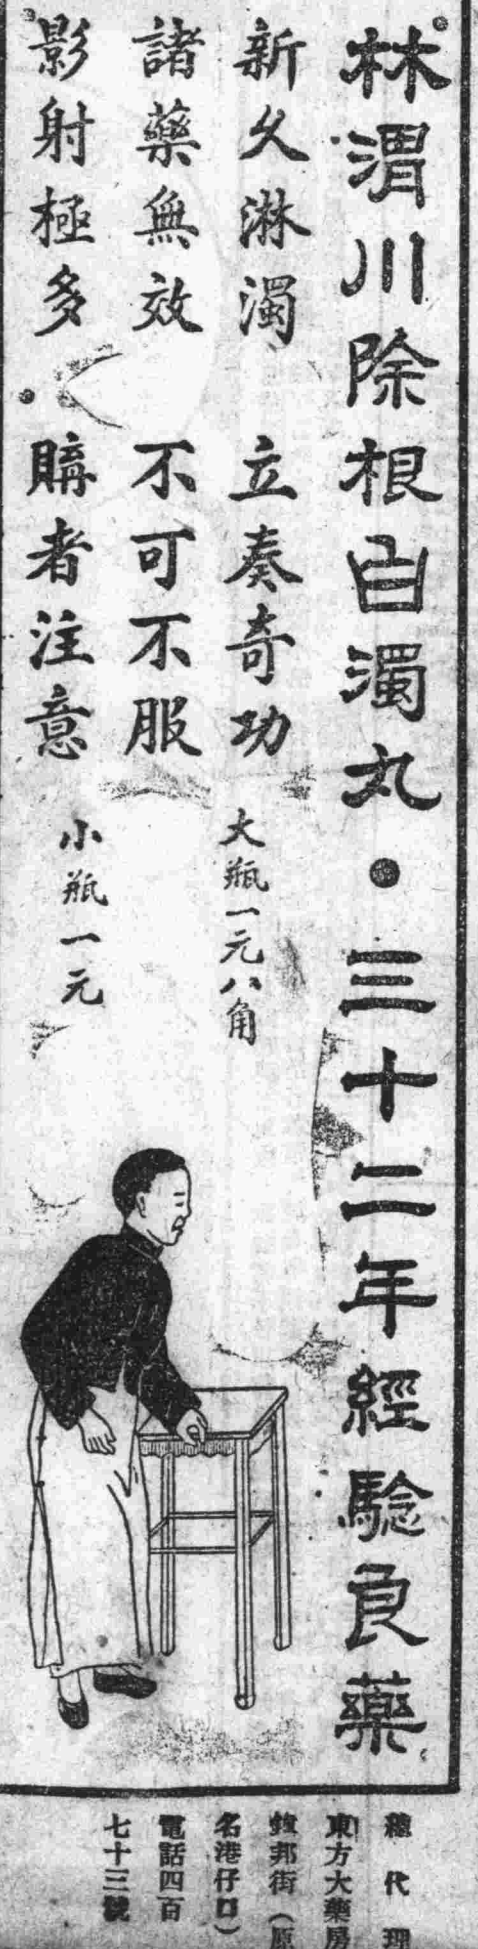 林渭川除根白濁丸•三十二年經驗良藥
新久淋濁 立奏奇功
諸藥無效 不可不服
影射極多 購者注意
大瓶一元八角
小瓶一元
總代理
東方大藥房
鎮邦街(原
名港仔口)
電話四百
七十三號